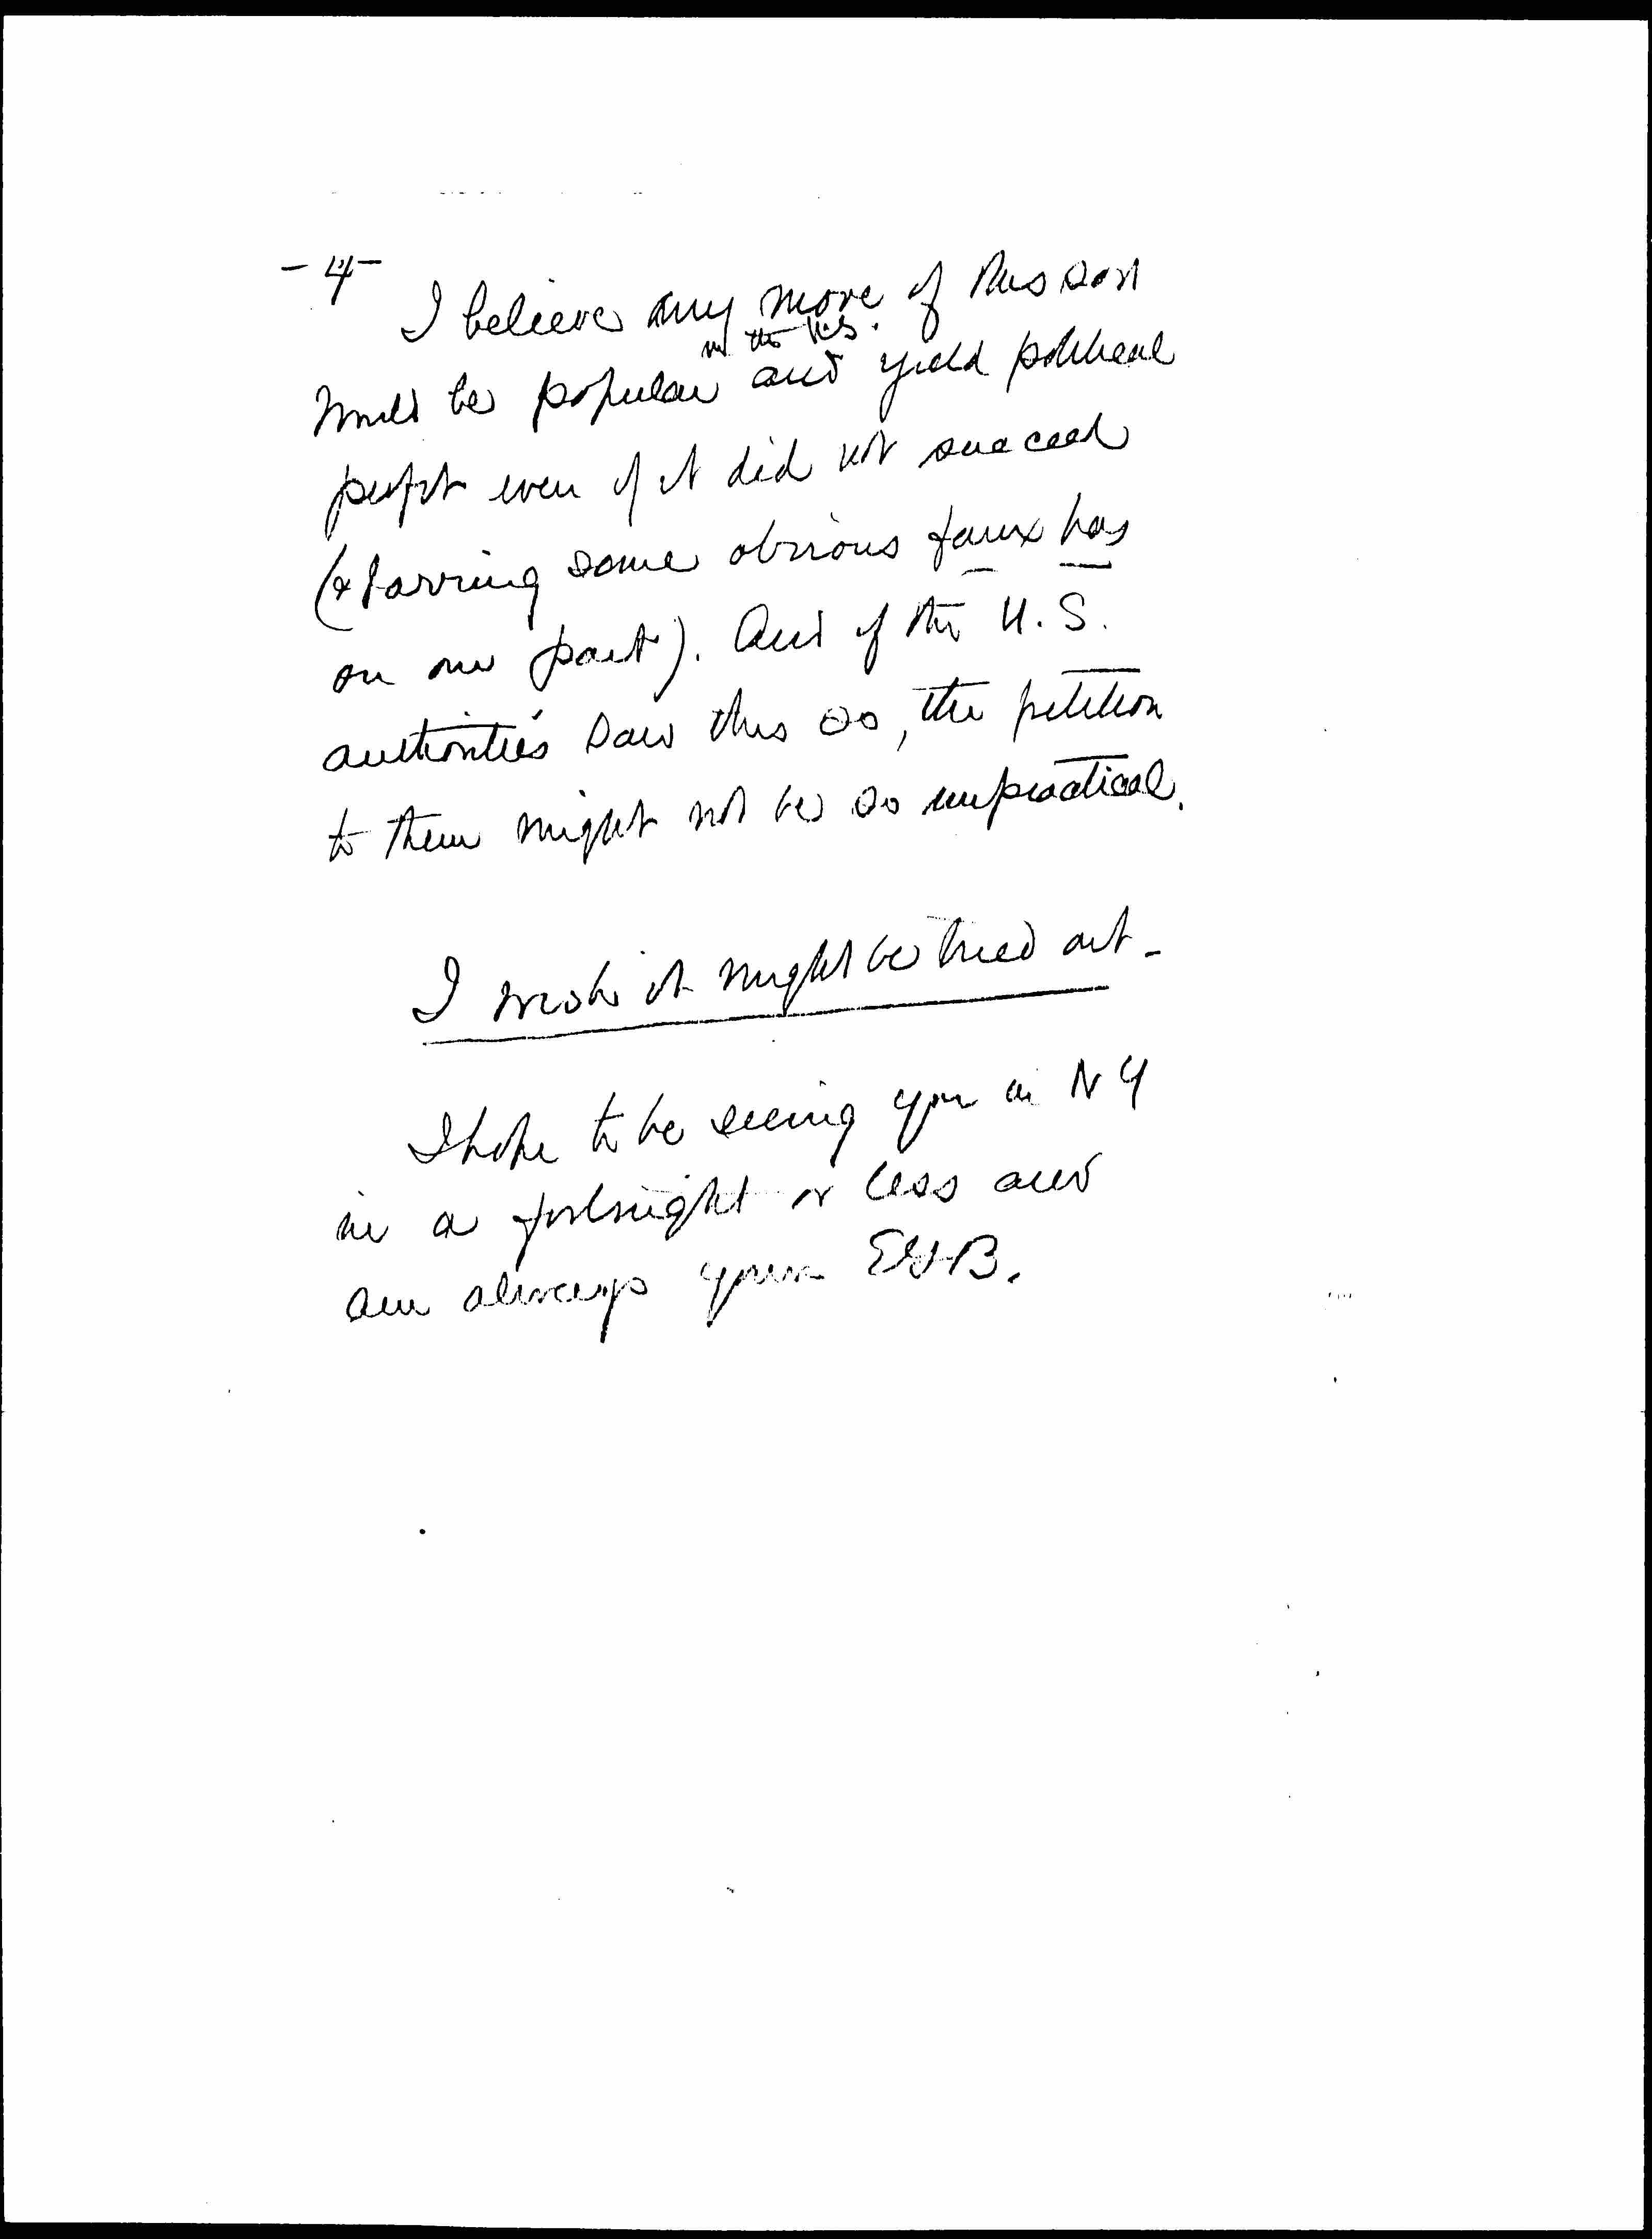 -4-
I believe any move of this sort
in the U.S.
would be popular and yield political
profit even if it did not succeed
(& barring some obvious faux pas
on our part). And if the U.S.
authorities saw this so, the petition
to them might not be so unpractical.
I wish it might be tried out -
I hope to be seeing you in NY
in a fortnight or less and
am always yours EWB.